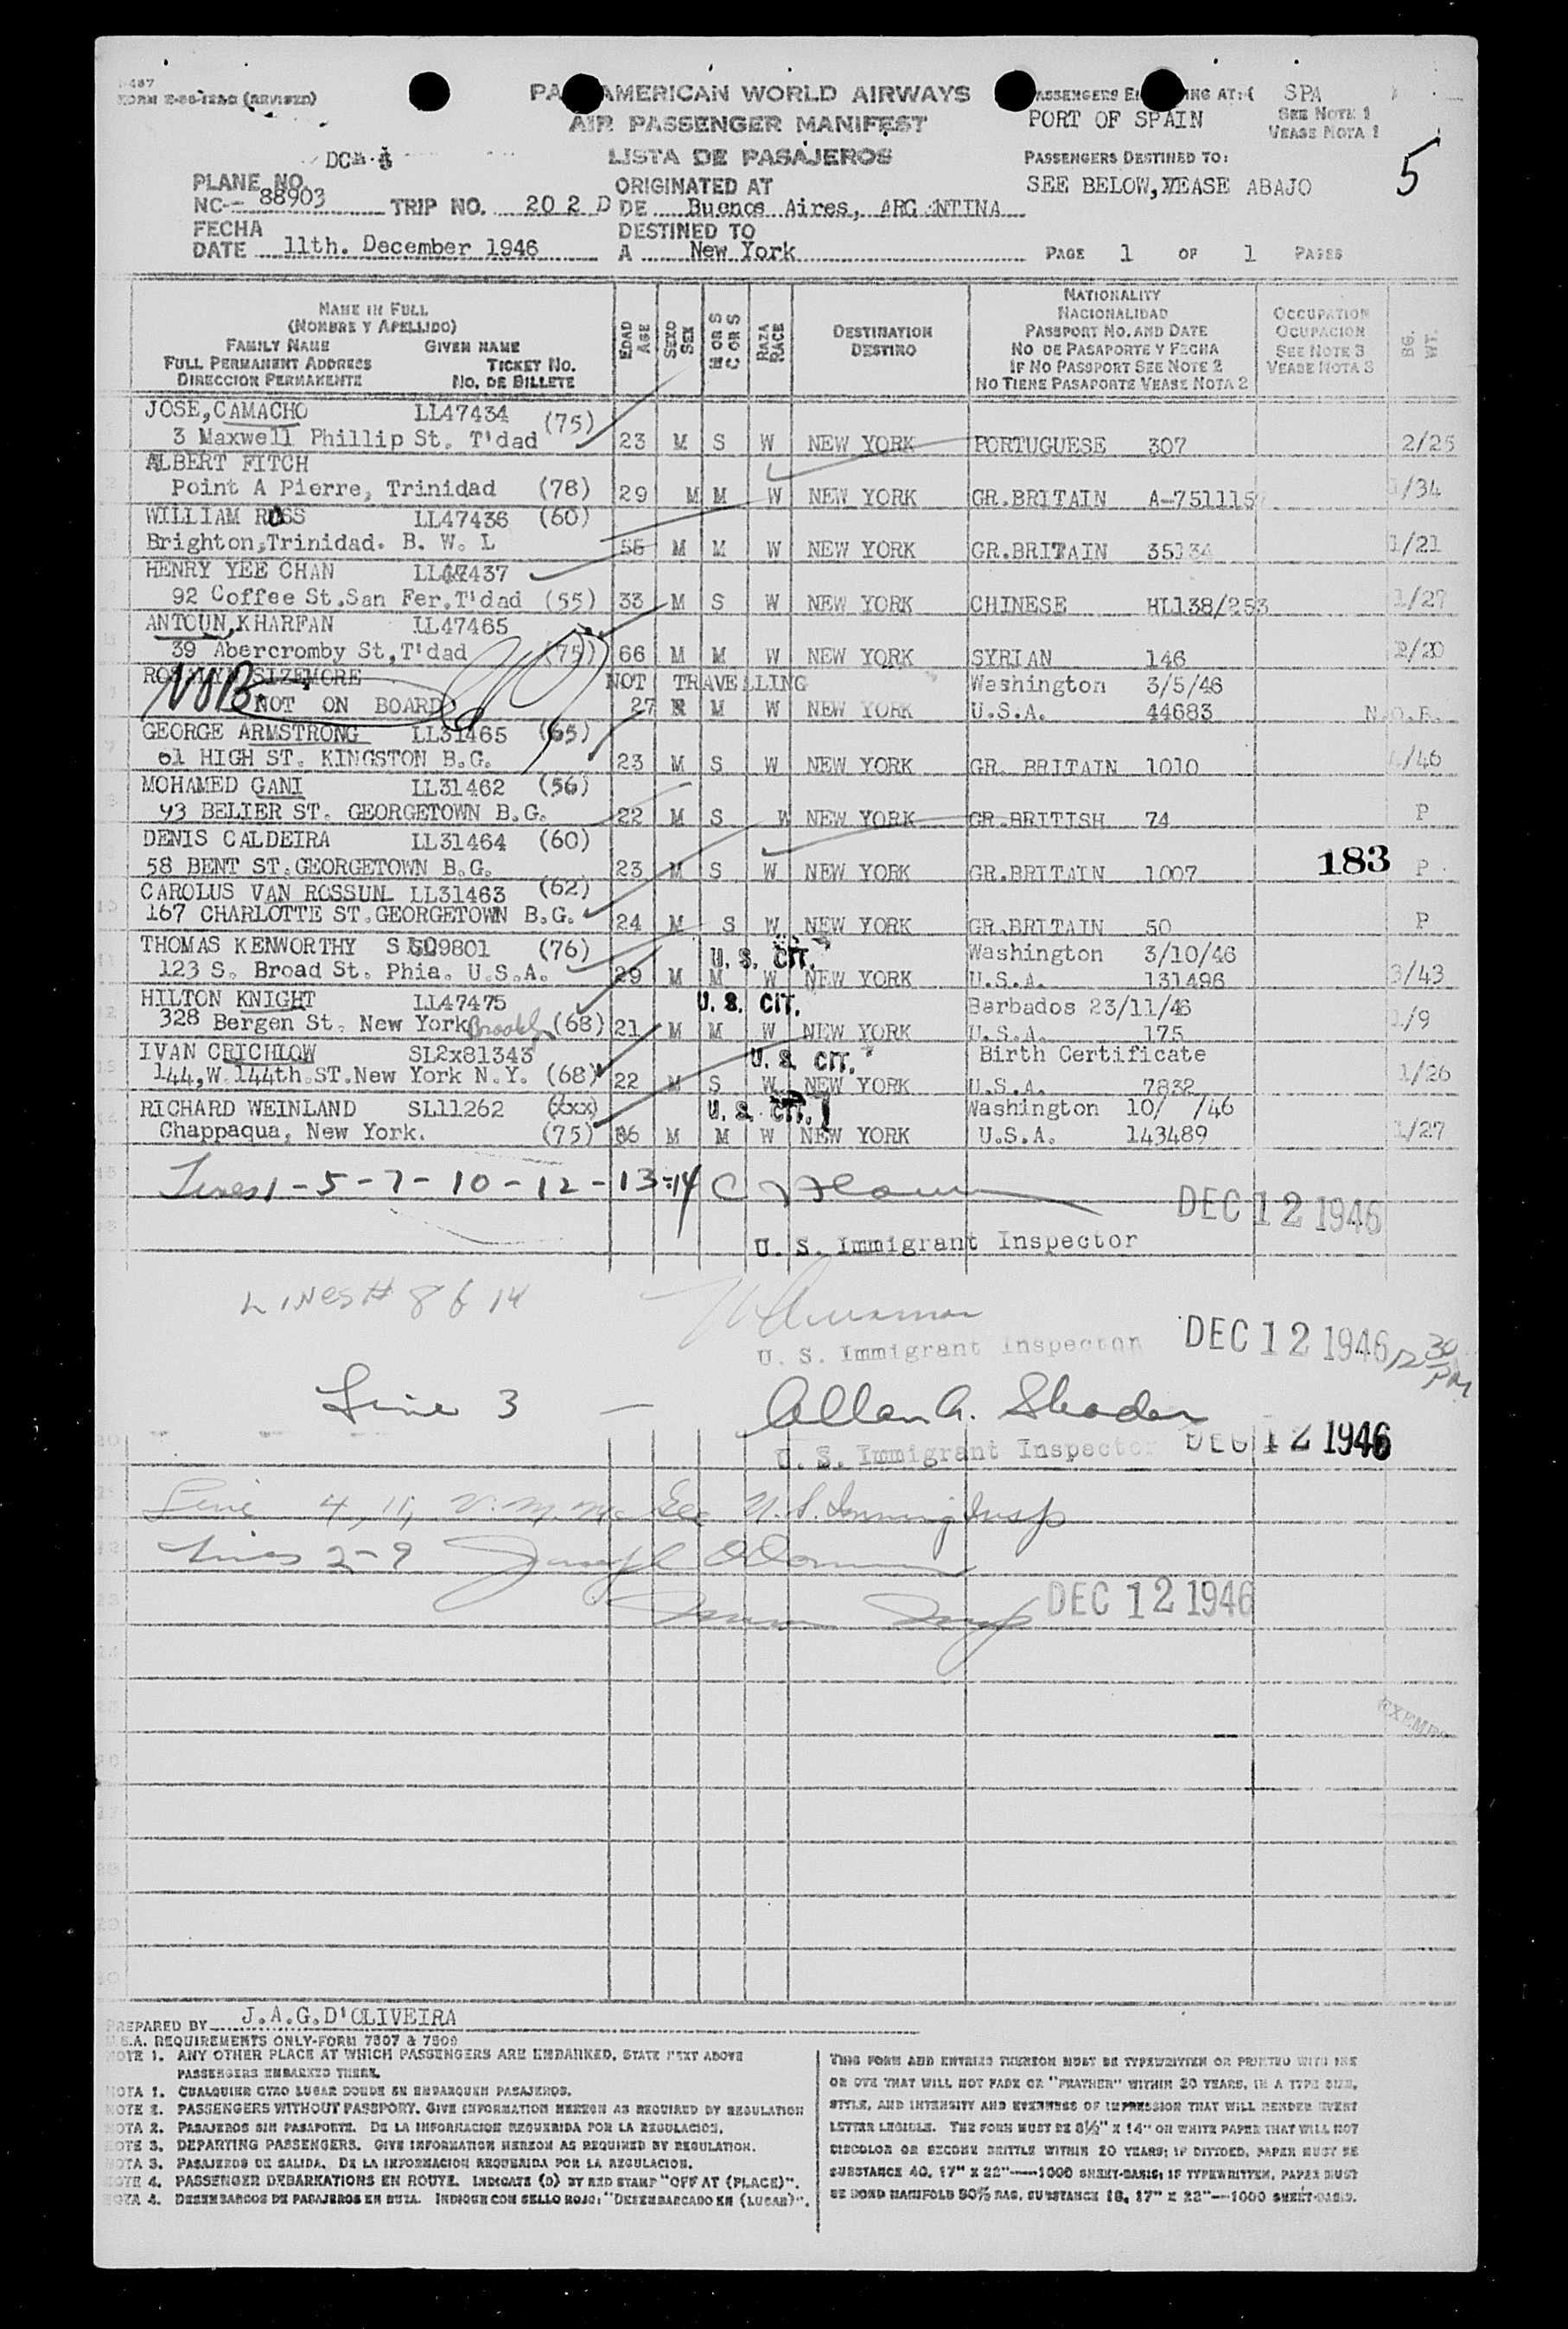 FORM E-86-128G (REVISED)
PAN AMERICAN WORLD AIRWAYS
AIR PASSENGER MANIFEST
LISTA DE PASAJEROS
PASSENGERS AT: SPA
PORT OF SPAIN
SEE NOTE 1
VEASE NOTA 1
PASSENGERS DESTINED TO:
SEE BELOW, VEASE ABAJO
5
PLANE NO.
NC- 88903 TRIP NO. 202 D
ORIGINATED AT
DE Buenos Aires, ARGENTINA
FECHA
DATE 11th. December 1946
DESTINED TO
A New York
PAGE 1 OF 1 PAGES
NAME IN FULL
(NOMBRE Y APELLIDO)
FAMILY NAME GIVEN NAME
FULL PERMANENT ADDRESS TICKET NO.
DIRECCION PERMANENTE NO. DE BILLETE
EDAD AGE
SEXO SEX
RAZA RACE
DESTINATION
DESTINO
NATIONALITY
NACIONALIDAD
PASSPORT NO. AND DATE
NO DE PASAPORTE Y FECHA
IF NO PASSPORT SEE NOTE 2
NO TIENE PASAPORTE VEASE NOTA 2
OCCUPATION
OCUPACION
SEE NOTE 3
VEASE NOTA 3
BG. WT.
JOSE, CAMACHO LL47434 (75)
3 Maxwell Phillip St. T'dad 23 M S W NEW YORK PORTUGUESE 307 2/25
ALBERT FITCH
Point A Pierre, Trinidad (78) 29 M M W NEW YORK GR.BRITAIN A-751115 /34
WILLIAM ROSS LL47436 (60)
Brighton, Trinidad. B. W. I. 55 M M W NEW YORK GR.BRITAIN 35134 1/21
HENRY YEE CHAN LL47437
92 Coffee St. San Fer. T'dad (55) 33 M S W NEW YORK CHINESE HL138/253 1/27
ANTOUN, KHARFAN LL47465
39 Abercromby St, T'dad (75) 66 M M W NEW YORK SYRIAN 146 2/20
SIZEMORE NOT TRAVELLING Washington 3/5/46
NOB NOT ON BOARD 27 M W NEW YORK U.S.A. 44683 N.O.B.
GEORGE ARMSTRONG LL31465 (65)
61 HIGH ST. KINGSTON B.G. 23 M S W NEW YORK GR. BRITAIN 1010 /46
MOHAMED GANI LL31462 (56)
93 BELIER ST. GEORGETOWN B.G. 22 M S W NEW YORK GR.BRITISH 74 P
DENIS CALDEIRA LL31464 (60)
58 BENT ST. GEORGETOWN B.G. 23 M S W NEW YORK GR.BRITAIN 1007 183 P
CAROLUS VAN ROSSUN LL31463 (62)
167 CHARLOTTE ST. GEORGETOWN B.G. 24 M S W NEW YORK GR.BRITAIN 50 P
THOMAS KENWORTHY 9801 (76) U. S. CIT. Washington 3/10/46
123 S. Broad St. Phia. U.S.A. 29 M M W NEW YORK U.S.A. 131496 3/43
HILTON KNIGHT LL47475 U. S. CIT. Barbados 23/11/46
328 Bergen St. New York Brooklyn (68) 21 M M W NEW YORK U.S.A. 175 1/9
IVAN CRICHLOW SL2x81343 U. S. CIT. Birth Certificate
144, W. 144th. ST. New York N.Y. (68) 22 M S W NEW YORK U.S.A. 7832 1/26
RICHARD WEINLAND SL11262 (xxx) U. S. CIT. Washington 10/ /46
Chappaqua, New York. (75) 36 M M W NEW YORK U.S.A. 143489 1/27
Lines 1-5-7-10-12-13-14
DEC 12 1946
U. S. Immigrant Inspector
LINES # 8 6 14
U. S. Immigrant Inspector DEC 12 1946 12 30 PM
Line 3 — Allan A. Shader
U. S. Immigrant Inspector DEC 12 1946
Line 4, 11, V. M. McGee U. S. Immig Insp
Lines 2-9 Joseph
Insp DEC 12 1946
EXEMPT
PREPARED BY J.A.G.D'OLIVEIRA
U.S.A. REQUIREMENTS ONLY-FORM 7507 & 7509
NOTE 1. ANY OTHER PLACE AT WHICH PASSENGERS ARE EMBARKED, STATE NEXT ABOVE
PASSENGERS EMBARKED THERE.
NOTA 1. CUALQUIER OTRO LUGAR DONDE SE EMBARQUEN PASAJEROS.
NOTE 2. PASSENGERS WITHOUT PASSPORT. GIVE INFORMATION HEREON AS REQUIRED BY REGULATION
NOTA 2. PASAJEROS SIN PASAPORTE. DE LA INFORMACION REQUERIDA POR LA REGULACION.
NOTE 3. DEPARTING PASSENGERS. GIVE INFORMATION HEREON AS REQUIRED BY REGULATION.
NOTA 3. PASAJEROS DE SALIDA. DE LA INFORMACION REQUERIDA POR LA REGULACION.
NOTE 4. PASSENGER DEBARKATIONS EN ROUTE. INDICATE (D) BY RED STAMP "OFF AT (PLACE)".
NOTA 4. DESEMBARCOS DE PASAJEROS EN RUTA. INDIQUE CON SELLO ROJO: "DESEMBARCADO EN (LUGAR)".
THIS FORM AND ENTRIES THEREON MUST BE TYPEWRITTEN OR PRINTED WITH INK
OR DYE THAT WILL NOT FADE OR "FEATHER" WITHIN 20 YEARS, IN A TYPE SIZE,
STYLE, AND INTENSITY AND EVENNESS OF IMPRESSION THAT WILL RENDER EVERY
LETTER LEGIBLE. THE FORM MUST BE 8½" X 14" OR WHITE PAPER THAT WILL NOT
DISCOLOR OR BECOME BRITTLE WITHIN 20 YEARS; IF DITTOED, PAPER MUST BE
SUBSTANCE 40, 17" X 22"—1000 SHEET-BASIS; IF TYPEWRITTEN, PAPER MUST
BE BOND MANIFOLD 50% RAG, SUBSTANCE 16, 17" X 22"—1000 SHEET-BASIS.